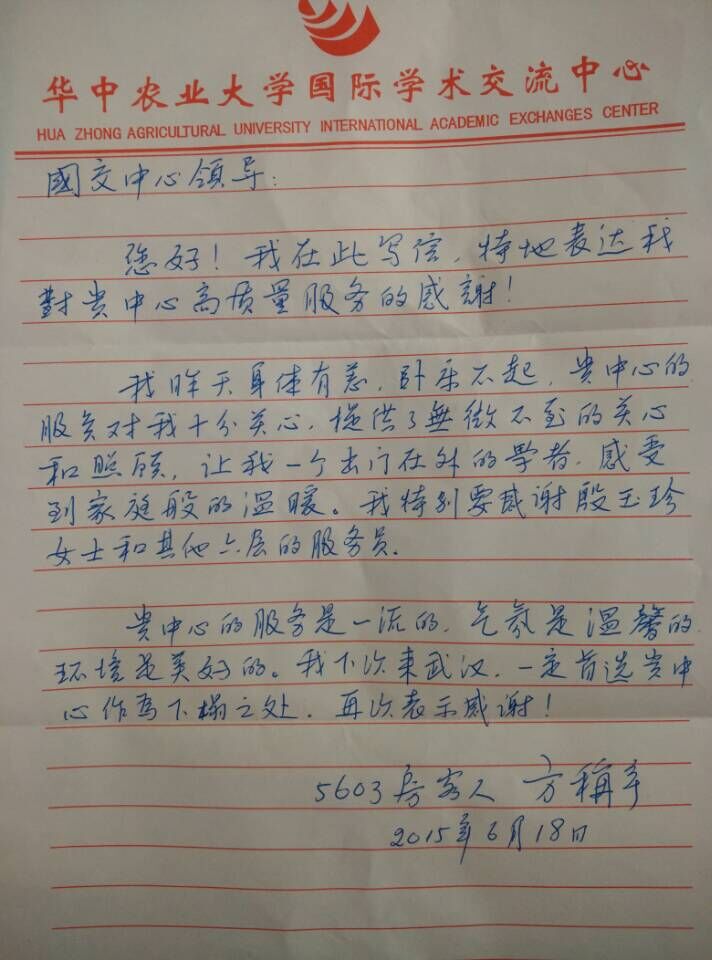 华中农业大学国际学术交流中心
HUA ZHONG AGRICULTURAL UNIVERSITY INTERNATIONAL ACADEMIC EXCHANGES CENTER
國交中心領导:
您好！我在此写信，特地表达我
對贵中心高质量服务的感謝！
我昨天身体有恙，卧床不起，贵中心的
服务对我十分关心，提供了無微不至的关心
和照顾，让我一个出门在外的學者，感受
到家庭般的温暖。我特别要感谢殷玉珍
女士和其他六层的服务员.
贵中心的服务是一流的，气氛是温馨的
环境是美好的。我下次来武汉，一定首选贵中
心作為下榻之处．再次表示感谢！
5603房客人 方稱
2015年6月18日